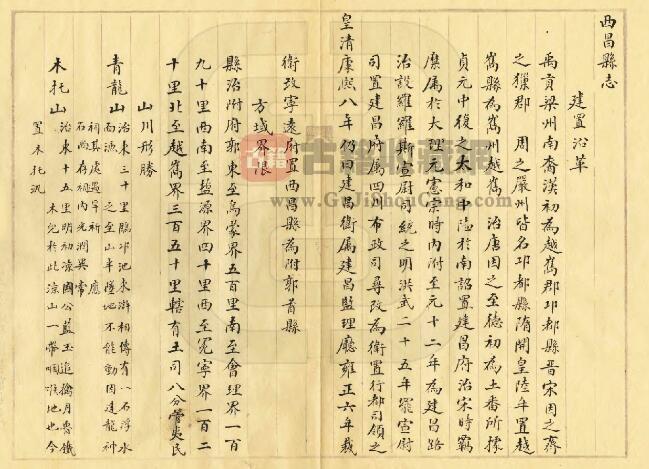 西昌縣志
建置沿革
禹貢梁州南裔漢初為越嶲郡邛都縣晉宋因之齊
之獠郡　周之嚴州皆名邛都縣隋開皇陸年置越
嶲縣為嶲州越嶲　治唐因之至德初為土番所據
貞元中復之太和中陷於南詔置建昌府治宋時羈
縻屬於大理元憲宗時內附至元十二年為建昌路
治設羅羅斯宣尉司統之明洪武二十五年罷宣尉
司置建昌府屬四川布政司尋改為衛置行都司領之
皇清康熙八年仍因建昌衛屬建昌監理廳雍正六年裁
衛改寧遠府置西昌縣為附郭首縣
方域界限
縣治附府郭東至烏蒙界五百里南至會理界一百
九十里西南至鹽源界四十里西至冕寧界一百二
十里北至越嶲界三百五十里轄有土司八分管夷民
山川形勝
青龍山治東三十里臨邛池水滸相傳有八石浮水
而渡　之至山半墜地不能動因建龍神
祠其處遇旱祈　應
石西存祠內光潤異常
木托山治東十五里明初涼國公藍玉追擒月魯鐵
木兒於此涼山一帶咽喉地也今
置木托汛
古籍
古籍收藏网
www.GuJiShouCang.com